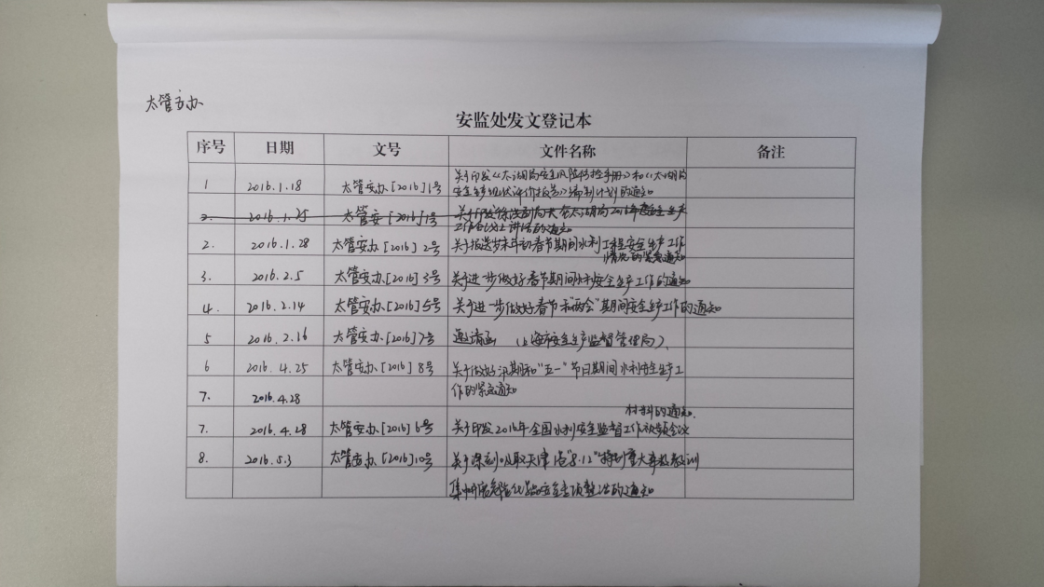 太管安办
安监处发文登记本
序号 日期 文号 文件名称 备注
1 2016.1.18 太管安办[2016]1号 关于印发《太湖局安全风险防控手册》和《太湖局
安全生产现状评价报告》编制计划的通知
2. 2016.1.25 太管安[2016]1号 关于印发 太湖局2016年度安全生产
工作会议上讲话的通知
2. 2016.1.28 太管安办[2016]2号 关于报送岁末年初春节期间水利工程安全生产工作
情况的紧急通知
3. 2016.2.5 太管安办[2016]3号 关于进一步做好春节期间水利安全生产工作的通知
4. 2016.2.14 太管安办[2016]5号 关于进一步做好春节和“两会”期间安全生产工作的通知
5 2016.2.16 太管安办[2016]7号 邀请函 (上海市安全生产监督管理局)、
6 2016.4.25 太管安办[2016]8号 关于做好汛期和“五一”节日期间水利安全生产工
作的紧急通知
7. 2016.4.28
材料的通知.
7. 2016.4.28 太管安办[2016]6号 关于印发2016年全国水利安全监督工作视频会议
8. 2016.5.3 太管安办[2016]10号 关于深刻吸取天津港“8.12”特别重大事故教训
集中开展危险化学品安全专项整治的通知